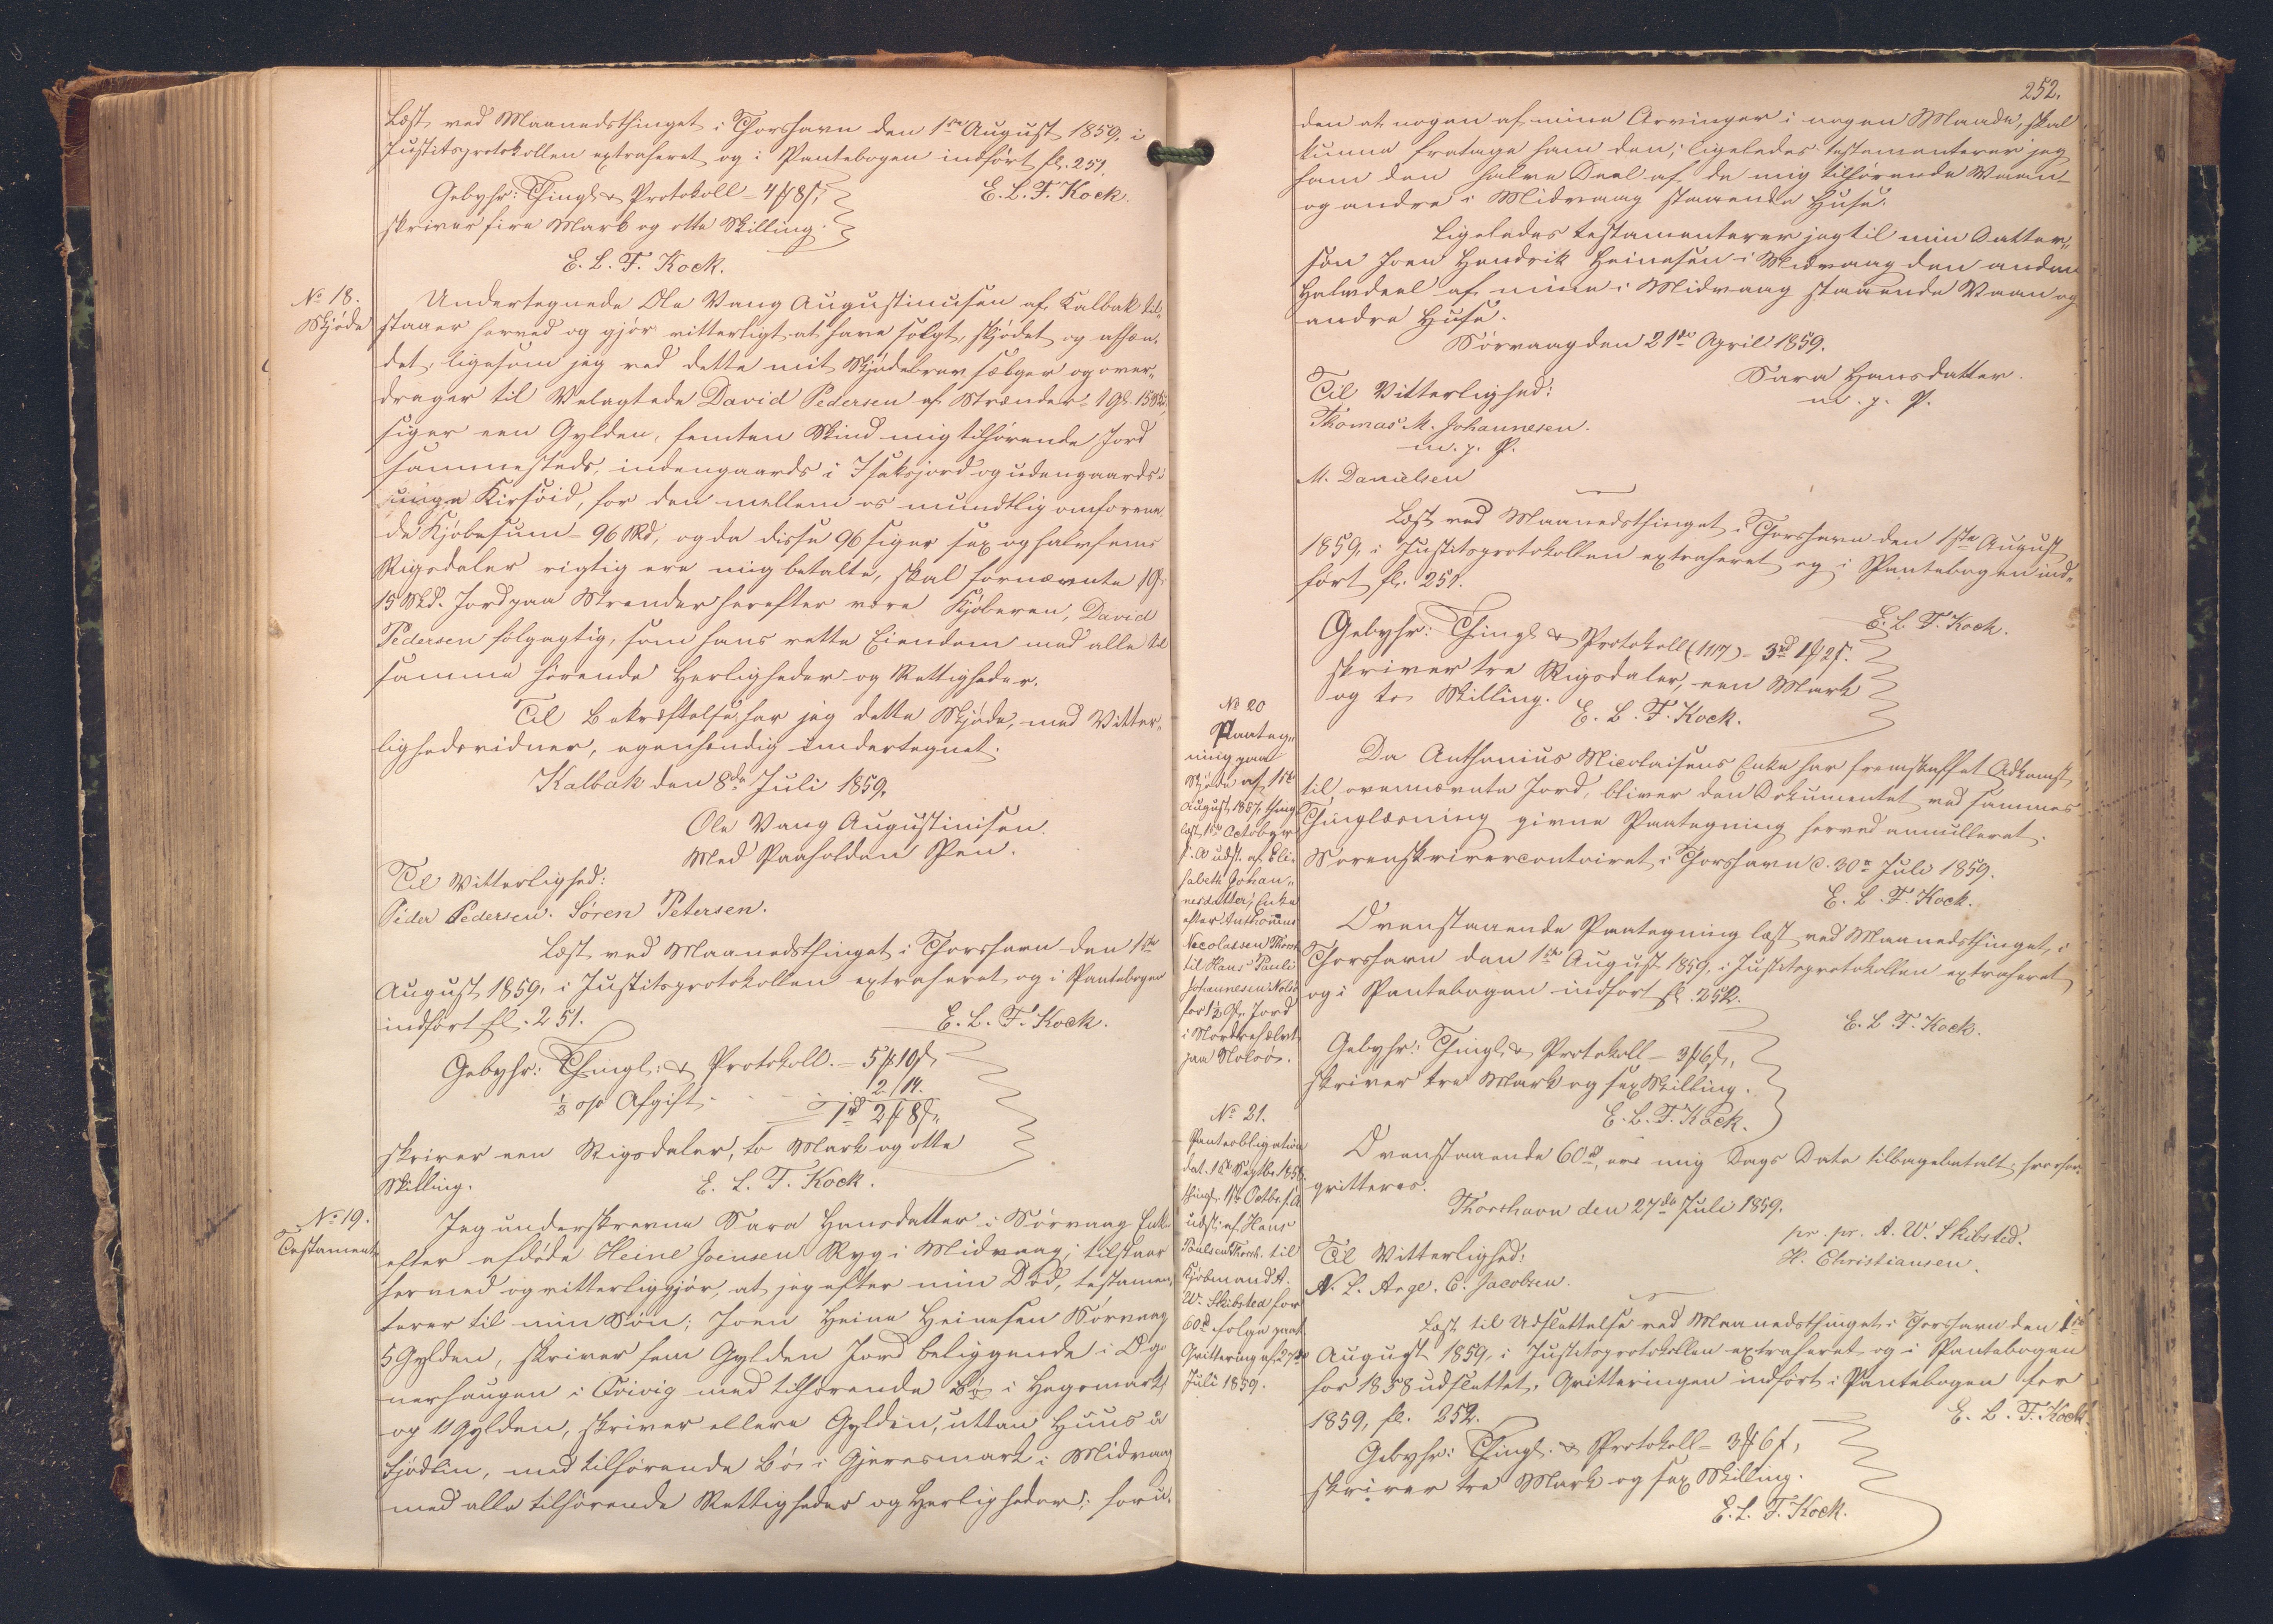 Læst ved Maanedsthinget i Thorshavn den 1ste August 1859, i
Justitsprotokollen extraheret og i Pantebogen indført fl. 251.
E. L. T. Kock.
Gebyhr: Thingl. & Protokoll - 4 ℳ 8 ß,
skriver fire Mark og otte Skilling.
E. L. T. Kock.
No 18.
Skjøde
Undertegnede Ole Vang Augustinusen af Kalbak til-
staaer herved og gjør vitterligt at have solgt, skjødet og afhæn-
det, ligesom jeg ved dette mit Skjødebrev sælger og over-
drager til Velagtede David Pedersen af Strænder 1 Gl. 15 Skd.,
siger een Gylden, femten Skind mig tilhørende Jord
sammesteds, indengaards i Isaksjord og udengaards i
Kirsøid, for den mellem os mundtlig omforene-
de Kjøbesum 96 Rd, og da disse 96 siger sex og halvfems
Rigsdaler rigtig ere mig betalte, skal fornævnte 1 Gl.
15 Skd. Jord paa Strender herefter være Kjøberen, David
Pedersen følgagtig, som hans rette Eiendom med alle til
samme hørende Herligheder og Rettigheder.
Til Bekræftelse har jeg dette Skjøde, med Vitter-
lighedsvidner, egenhændig undertegnet.
Kalbak den 8de Juli 1859.
Ole Vang Augustinisen.
Med Paaholden Pen.
Til Vitterlighed:
Peder Pedersen. Sören Petersen.
Læst ved Maanedsthinget i Thorshavn den 1ste
August 1859, i Justitsprotokollen extraheret og i Pantebogen
indført fl. 251.
E. L. T. Kock.
Gebyhr: Thingl. & Protokoll. - 5 ℳ 10 ß
½ o/o Afgift - 2 " 14.
1 rd 2 ℳ 8 ß,
skriver een Rigsdaler, to Mark og otte
Skilling.
E. L. T. Kock.
No 19.
Testament
Jeg underskrevne Sara Hansdatter i Sørvaag Enke
efter afdøde Heine Joensen Ryg i Midvaag, tilstaar
hermed og vitterliggjør, at jeg efter min Død, testamen-
terer til min Søn; Joen Heine Heinesen Sørvaag
5 Gylden, skriver fem Gylden Jord beliggende i Og-
nerhaugen i Qvivig med tilhørende Bø i Hegomark,
og 11 Gylden, skriver elleve Gylden, uttan Huus a
Fjødlin, med tilhørende Bø i Gjeresmark i Midvaag
med alle tilhørende Rettigheder og Herligheder; foru-
252.
den at nogen af mine Arvinger i nogen Maade, skal
kunne fratage ham den; ligeledes testamenterer jeg
ham den halve Deel af de mig tilhørende Vaan-
og andre i Midvaag staaende Huse.
Ligeledes testamenterer jeg til min Datter-
søn Joen Hendrik Heinesen i Midvaag den anden
Halvdeel af mine i Midvaag staaende Vaan og
andre Huse.
Sørvaag den 21de April 1859.
Sara Hansdatter.
m. p. P.
Til Vitterlighed:
Thomas M. Johannesen.
m. p. P.
M. Danielsen
Læst ved Maanedsthinget i Thorshavn den 1ste August
1859, i Justitsprotokollen extraheret og i Pantebogen ind-
ført fl. 251.
E. L. T. Kock.
Gebyhr: Thingl. & Protokoll (1117) - 3 rd 1 ℳ 2 ß.
skriver tre Rigsdaler, een Mark
og to Skilling.
E. L. T. Kock.
No 20
Paateg-
ning paa
Skjøde af 1ste
August 1857, thing-
læst 1ste October
s. A. udst. af Eli-
sabeth Johan-
nesdatter, Enke
efter Anthonius
Necolassen Thorsh.
til Hans Pauli
Johannesen Nolsö
for 1½ Gl. Jord
i Nordrehælvt
paa Nolsö.
Da Anthonius Nicolaisens Enke har fremskaffet Adkomst
til ovennævnte Jord, bliver den Dokumentet ved sammes
Thinglæsning givne Paategning herved annulleret.
Sorenskrivercontoiret i Thorshavn d. 30te Juli 1859.
E. L. T. Kock.
Ovenstaaende Paategning læst ved Maanedsthinget i
Thorshavn den 1ste August 1859, i Justitsprotokollen extraheret
og i Pantebogen indført fl. 252.
E. L. T. Kock.
Gebyhr: Thingl. & Protokoll - 3 ℳ 6 ß,
skriver tre Mark og sex Skilling.
E. L. T. Kock.
No 21.
Panteobligation
dat. 1ste Septbr. 1858
thingl. 1ste Octbr. s. A.
udst. af Hans
Poulsen Thorsh. til
Kjøbmand A.
W. Skibsted for
60 rd ifølge paat.
Qvittering af 27de
Juli 1859.
Ovenstaaende 60 rd, ere mig Dags Dato tilbagebetalt, hvorfor
qvitteres.
Thorshavn den 27de Juli 1859.
pr. pr. A. W. Skibsted.
H. Christiansen.
Til Vitterlighed:
N. P. Arge. C. Jacobsen.
Læst til Udslettelse ved Maanedsthinget i Thorshavn den 1ste
August 1859, i Justitsprotokollen extraheret og i Pantebogen
for 1858 udslettet. Qvitteringen indført i Pantebogen for
1859, fl. 252.
E. L. T. Kock.
Gebyhr: Thingl. & Protokoll - 3 ℳ 6 ß,
skriver tre Mark og sex Skilling.
E. L. T. Kock.